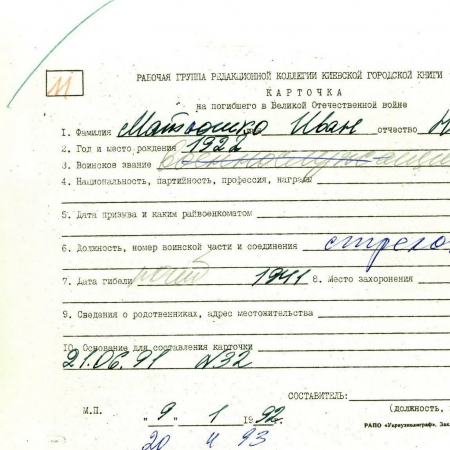 М
РАБОЧАЯ ГРУППА РЕДАКЦИОННОЙ КОЛЛЕГИИ КИЕВСКОЙ ГОРОДСКОЙ КНИГИ
КАРТОЧКА
на погибшего в Великой Отечественной войне
1. Фамилия Матюшко Иван отчество
2. Год и место рождения 1922
3. Воинское звание
4. Национальность, партийность, профессия, награды
5. Дата призыва и каким райвоенкоматом
6. Должность, номер воинской части и соединения
7. Дата гибели погиб 1941 8. Место захоронения
9. Сведения о родственниках, адрес местожительства
10. Основание для составления карточки
21.06.91 №32
СОСТАВИТЕЛЬ:
(ДОЛЖНОСТЬ,
М.П. "9" 1 1992
РАПО «Укрвузполиграф», Зак
20 4 93